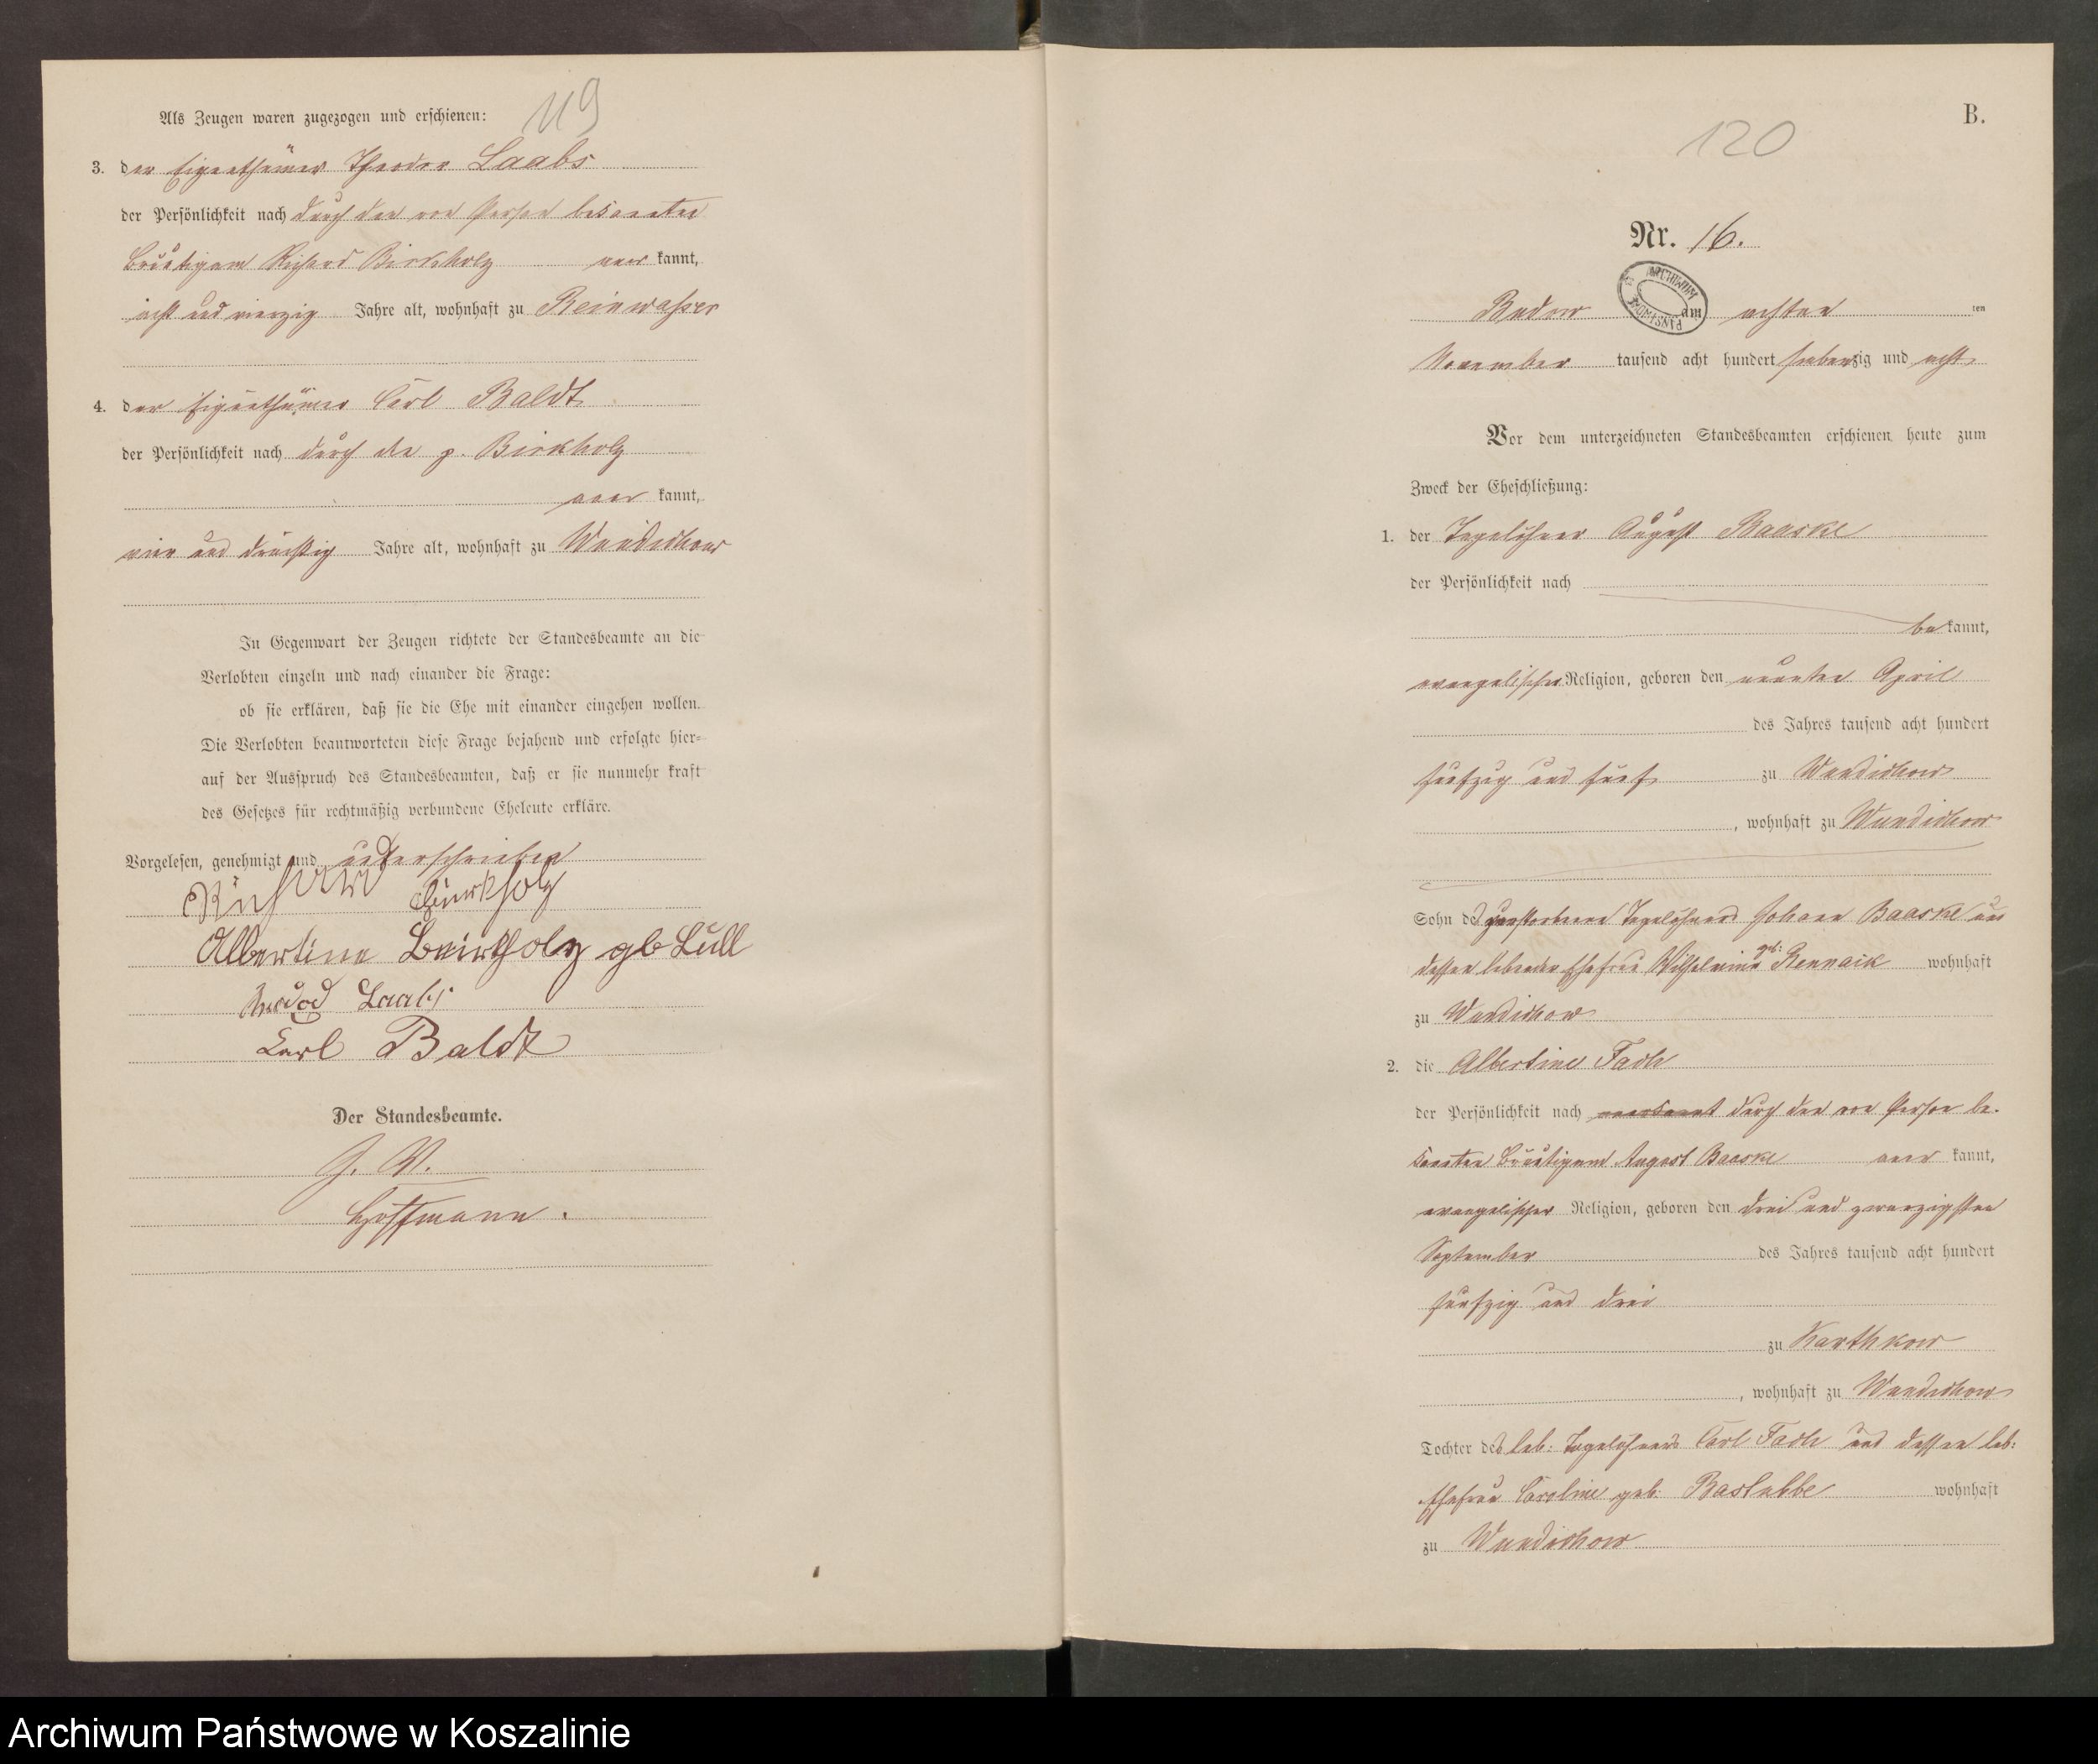 119
Als Zeugen waren zugezogen und erschienen:
3. der Eigenthümer Theodor Laabs
der Persönlichkeit nach durch den von Person bekannten
Bräutigam Richard Birkholz aner kannt,
acht und vierzig Jahre alt, wohnhaft zu Reinwasser
4. der Eigenthümer Carl Baldt
der Persönlichkeit nach durch den p. Birkholz
aner kannt,
vier und dreißig Jahre alt, wohnhaft zu Wundichow
In Gegenwart der Zeugen richtete der Standesbeamte an die
Verlobten einzeln und nach einander die Frage:
ob sie erklären, daß sie die Ehe mit einander eingehen wollen.
Die Verlobten beantworteten diese Frage bejahend und erfolgte hier-
auf der Ausspruch des Standesbeamten, daß er sie nunmehr kraft
des Gesetzes für rechtmäßig verbundene Eheleute erkläre.
Vorgelesen, genehmigt und unterschrieben
Albertine gb Lüll
Laabs
Carl Baldt
Der Standesbeamte.
J. V.
Hoffmann.
B.
120
Nr. 16.
ARCHIWUM PAŃSTWOWE
Budow am achten ten
November tausend acht hundert siebenzig und acht
Vor dem unterzeichneten Standesbeamten erschienen heute zum
Zweck der Eheschließung:
1. der Tagelöhner August Baaske
der Persönlichkeit nach
be kannt,
evangelischer Religion, geboren den neunten April
des Jahres tausend acht hundert
fünfzig und fünf zu Wundichow
, wohnhaft zu Wundichow
Sohn des verstorbenen Tagelöhners Johann Baaske und
dessen lebenden Ehefrau Wilhelmine geb: Rennack wohnhaft
zu Wundichow
2. die Albertine Fach
der Persönlichkeit nach anerkannt durch den von Person be-
kannten Bräutigam August Baaske aner kannt,
evangelischer Religion, geboren den drei und zwanzigsten
September des Jahres tausend acht hundert
fünfzig und drei
zu Karthkow
, wohnhaft zu Wundichow
Tochter des leb: Tagelöhners Carl Fach und dessen leb:
Ehefrau Caroline geb: wohnhaft
zu Wundichow
Archiwum Państwowe w Koszalinie